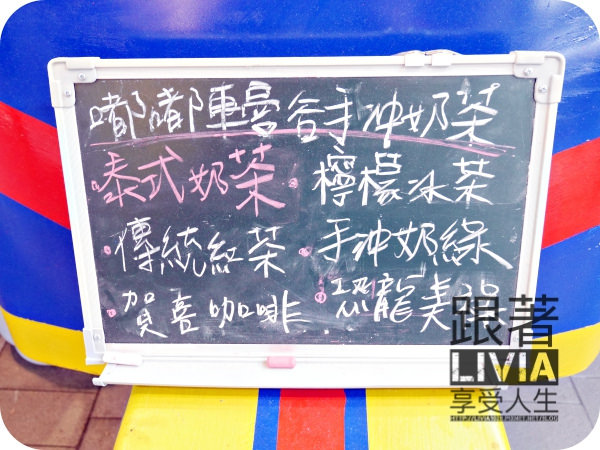 嘟嘟陣曼谷手沖奶茶
·泰式奶茶 ·檸檬冰茶
·傳統紅茶 ·手沖奶綠
·賀喜咖啡 ·恐龍美
跟著
LIVIA
享受人生